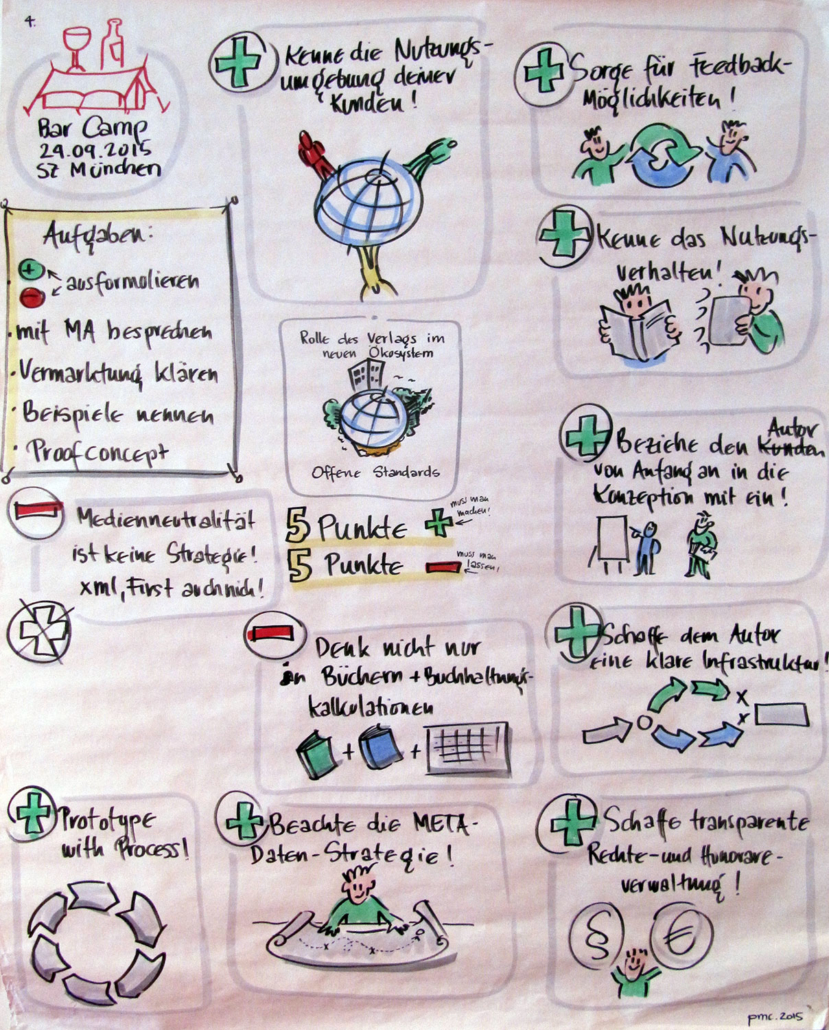 4.
Bar Camp
29.09.2015
SZ München
Aufgaben:
+ ausformolieren
-
· mit MA besprechen
· Vermarktung klären
· Beispiele nennen
· Proofconcept
Kenne die Nutzungs-
umgebung deiner
Kunden!
Sorge für Feedback-
Möglichkeiten!
Kenne das Nutzungs-
verhalten!
Rolle des Verlags im
neuen Ökosystem
Offene Standards
Autor
Beziehe den Kunden
von Anfang an in die
Konzeption mit ein!
Medienneutralität
ist keine Strategie!
xml, First auch nich!
5 Punkte +
muss man
machen!
5 Punkte -
muss man
lassen!
Denk nicht nur
in Büchern + Buchhaltungs-
kalkulationen
+ +
Schaffe dem Autor
eine klare Infrastruktur!
x
x
Prototype
with Process!
Beachte die META-
Daten-Strategie!
x x
Schaffe transparente
Rechte- und Honorare-
verwaltung!
§ €
pmc. 2015